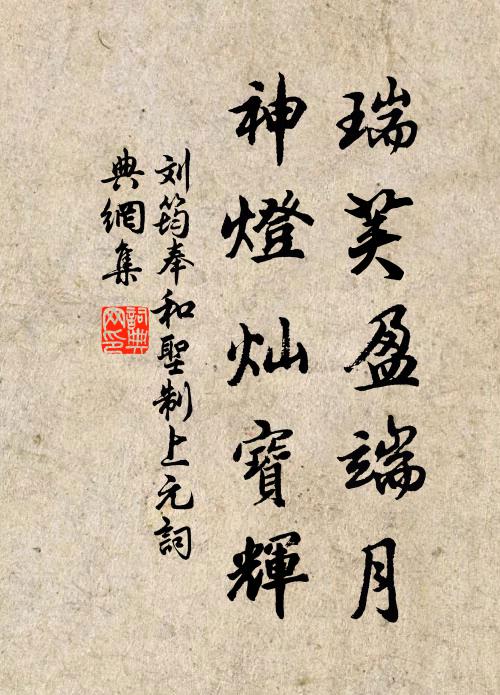 瑞荚盈端月
神燈灿寶輝
刘筠奉和聖制上元詞
典網集
詞典
网印